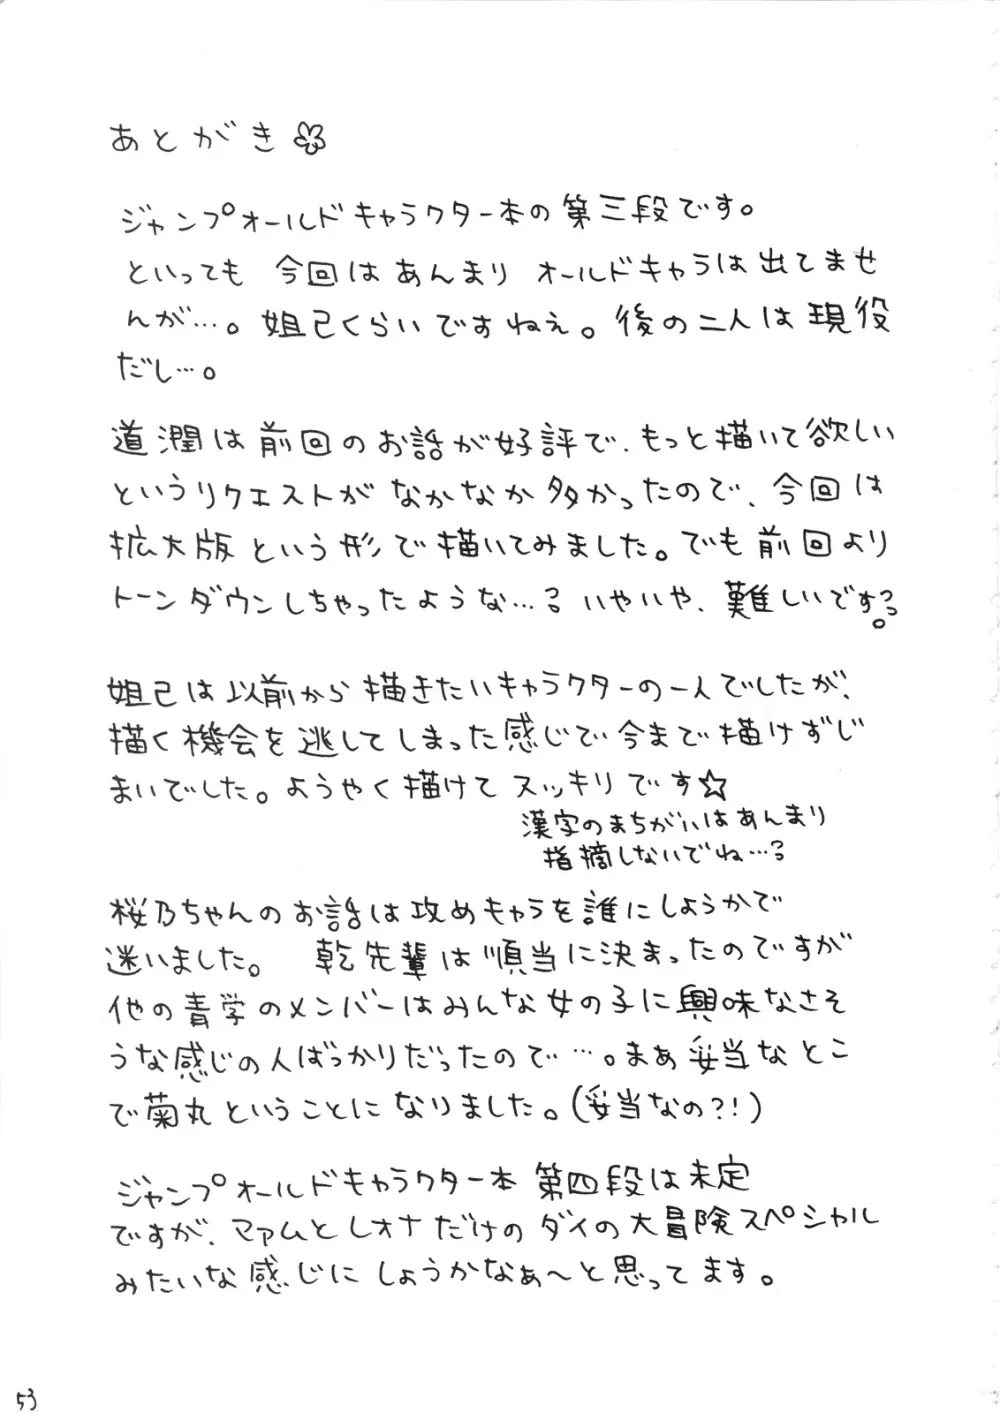 あとがき
ジャンプオールドキャラクター本の第三段です。
といっても 今回はあんまり オールドキャラは出てませ
んが…。妲己くらいですねえ。後の二人は現役
だし…。
道潤は前回のお話が好評で、もっと描いて欲しい
というリクエストが なかなか多かったので、今回は
拡大版という形で描いてみました。でも前回より
トーンダウンしちゃったような…？いやいや、難しいです？。
妲己は以前から描きたいキャラクターの一人でしたが、
描く機会を逃してしまった感じで今まで描けずじ
まいでした。ようやく描けてスッキリです☆
漢字のまちがいはあんまり
指摘しないでね…？
桜乃ちゃんのお話は攻めキャラを誰にしようかで
迷いました。 乾先輩は順当に決まったのですが
他の青学のメンバーはみんな女の子に興味なさそ
うな感じの人ばっかりだったので…。まぁ妥当なとこ
で菊丸ということになりました。(妥当なの?!)
ジャンプオールドキャラクター本 第四段は未定
ですが、マァムとレオナだけのダイの大冒険スペシャル
みたいな感じにしようかなぁ〜と思ってます。
53